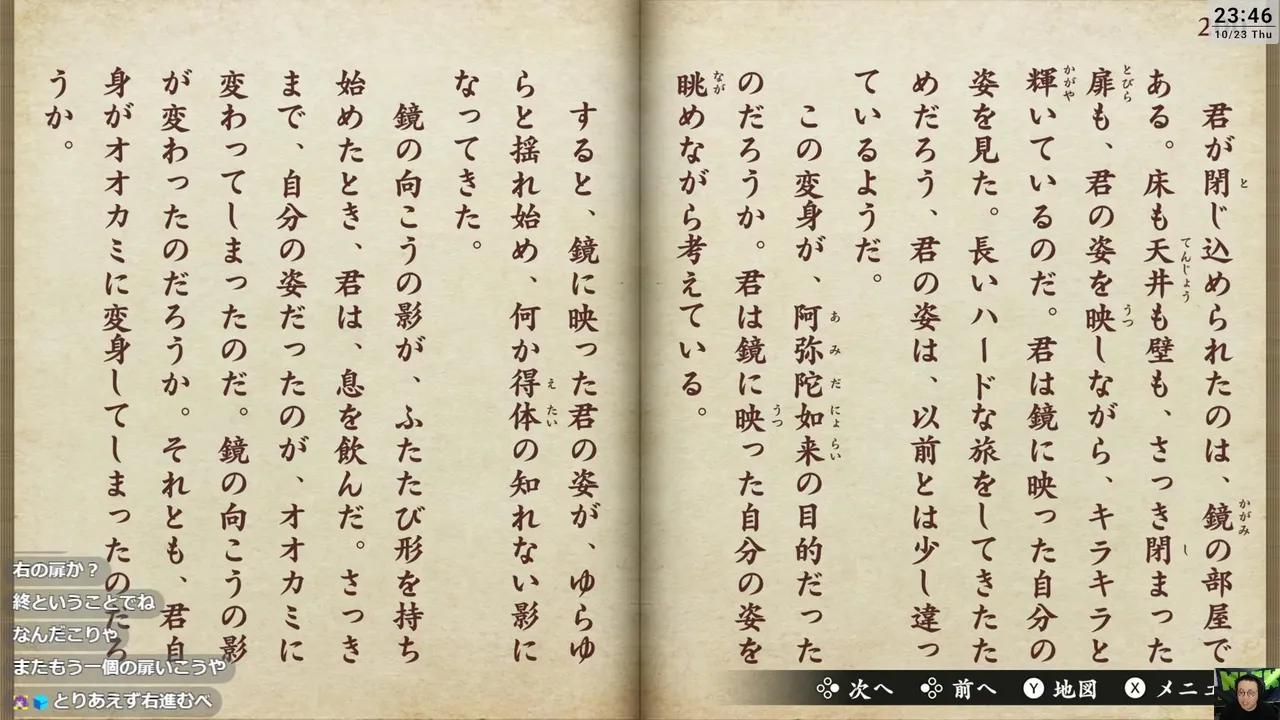 23:46
10/23 Thu
2
君が閉じ込められたのは、鏡の部屋で
ある。床も天井も壁も、さっき閉まった
扉も、君の姿を映しながら、キラキラと
輝いているのだ。君は鏡に映った自分の
姿を見た。長いハードな旅をしてきたた
めだろう、君の姿は、以前とは少し違っ
ているようだ。
この変身が、阿弥陀如来の目的だった
のだろうか。君は鏡に映った自分の姿を
眺めながら考えている。
すると、鏡に映った君の姿が、ゆらゆ
らと揺れ始め、何か得体の知れない影に
なってきた。
鏡の向こうの影が、ふたたび形を持ち
始めたとき、君は、息を飲んだ。さっき
まで、自分の姿だったのが、オオカミに
変わってしまったのだ。鏡の向こうの影
が変わったのだろうか。それとも、君自
身がオオカミに変身してしまったのだろ
うか。
右の扉か？
終ということでね
なんだこりゃ
またもう一個の扉いこうや
とりあえず右進むべ
次へ 前へ Y 地図 X メニュ